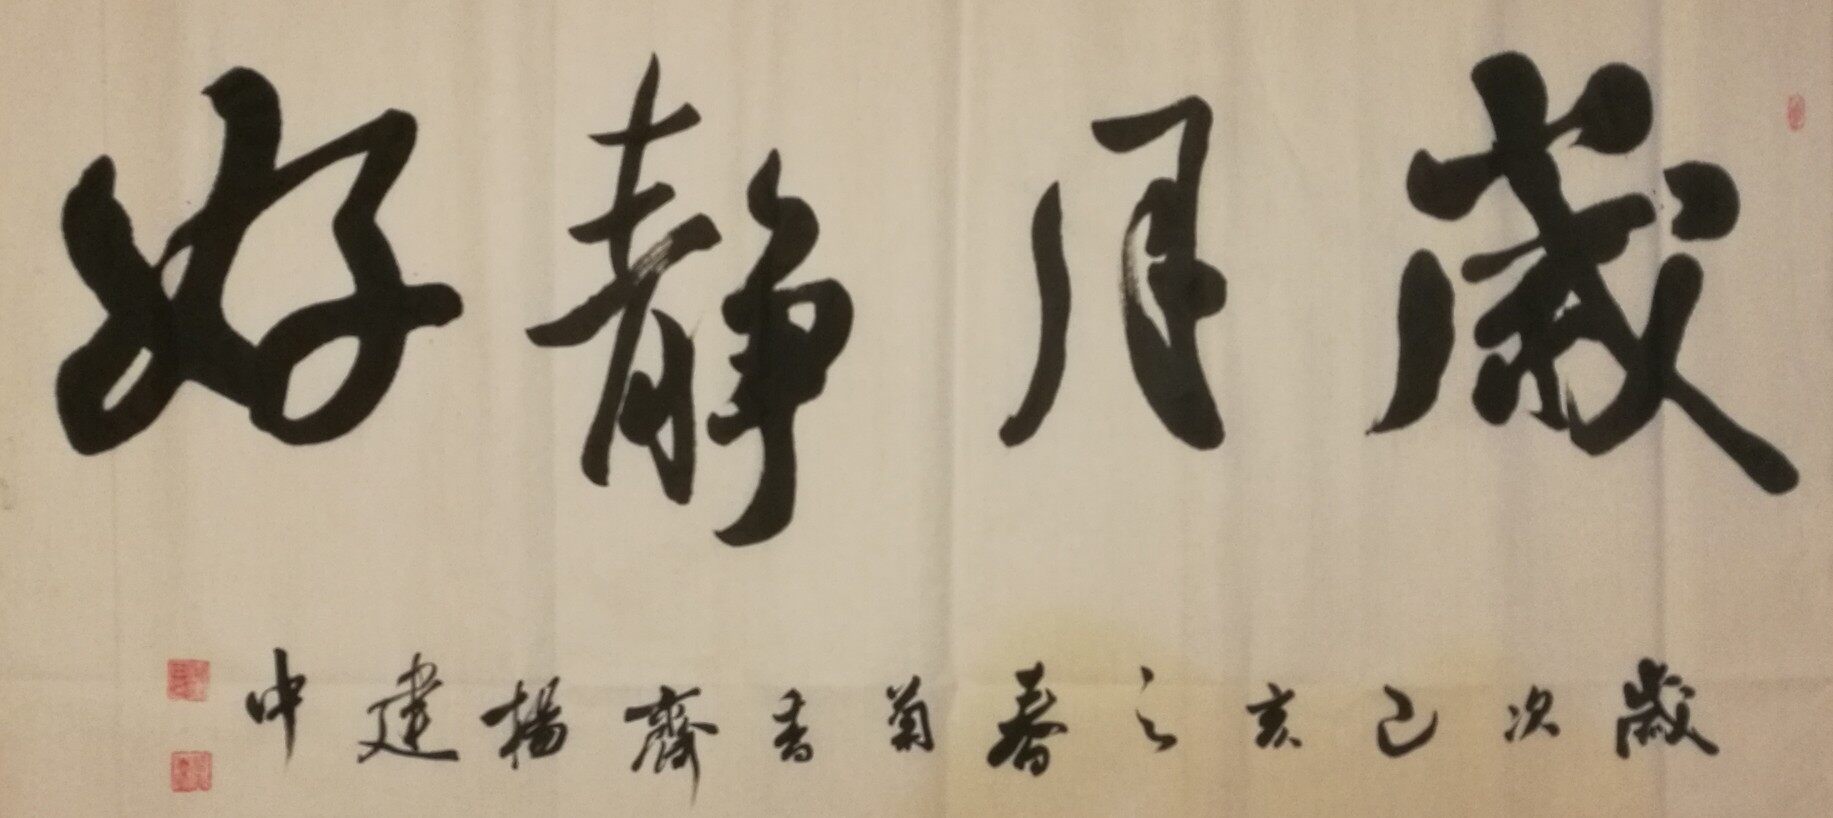 歲月静好
歲次己亥之春菊香齋楊建中